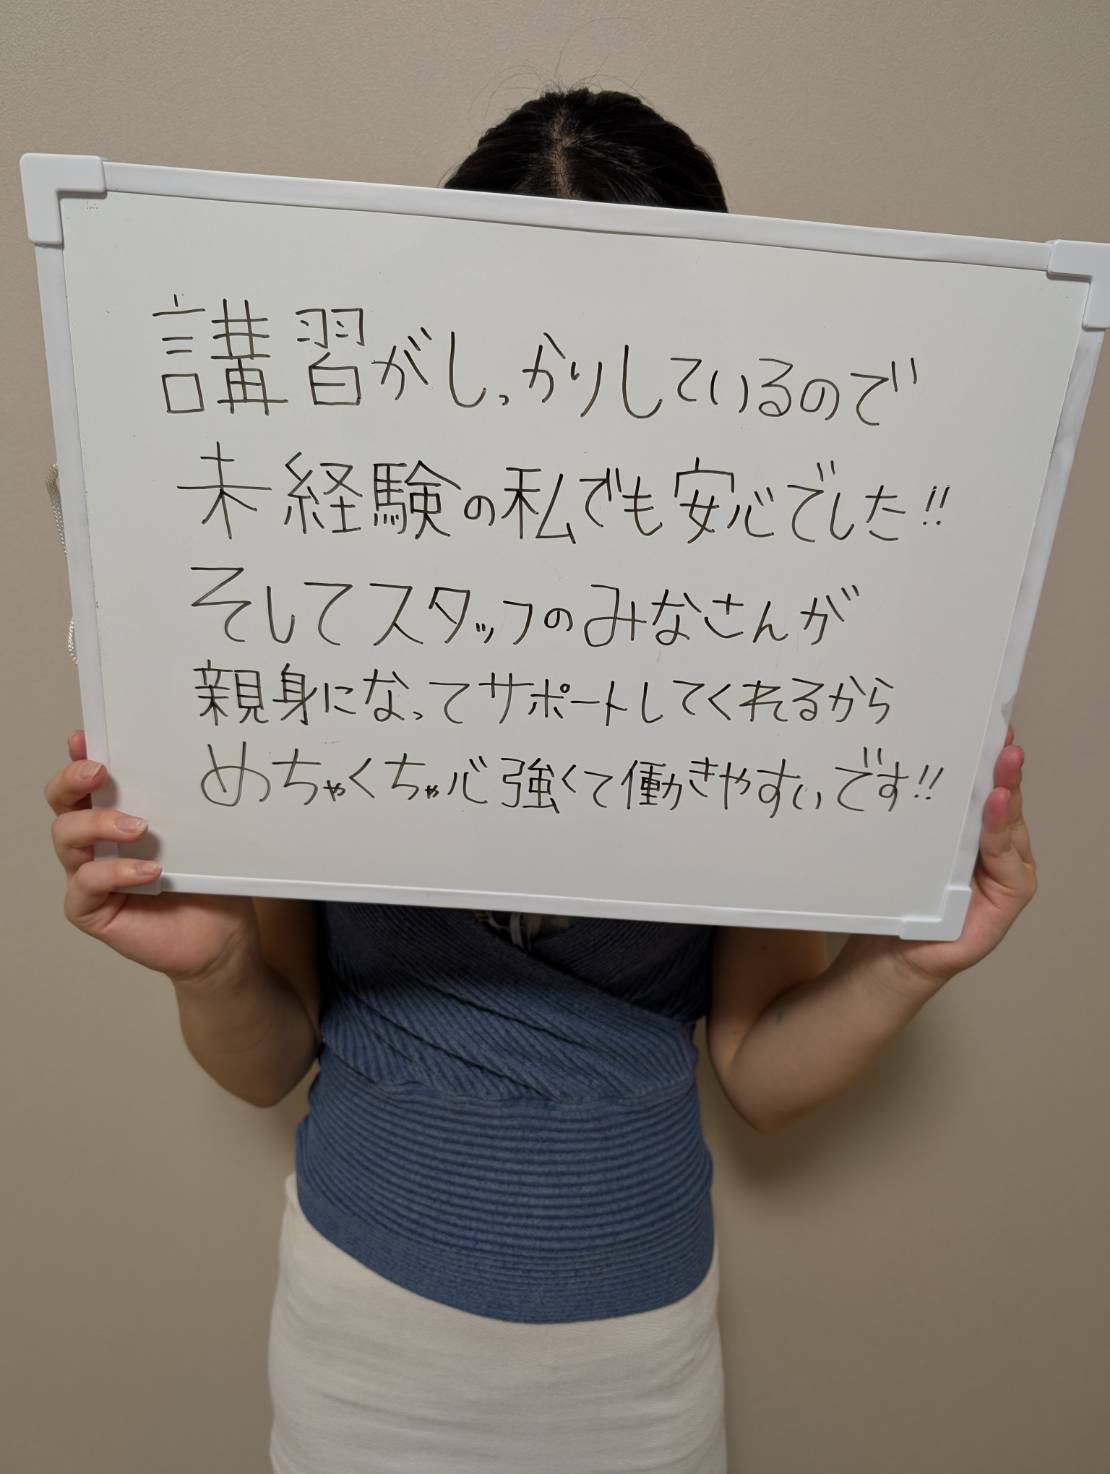 講習がしっかりしているので
未経験の私でも安心でした!!
そしてスタッフのみなさんが
親身になってサポートしてくれるから
めっちゃくちゃ心強くて働きやすいです!!